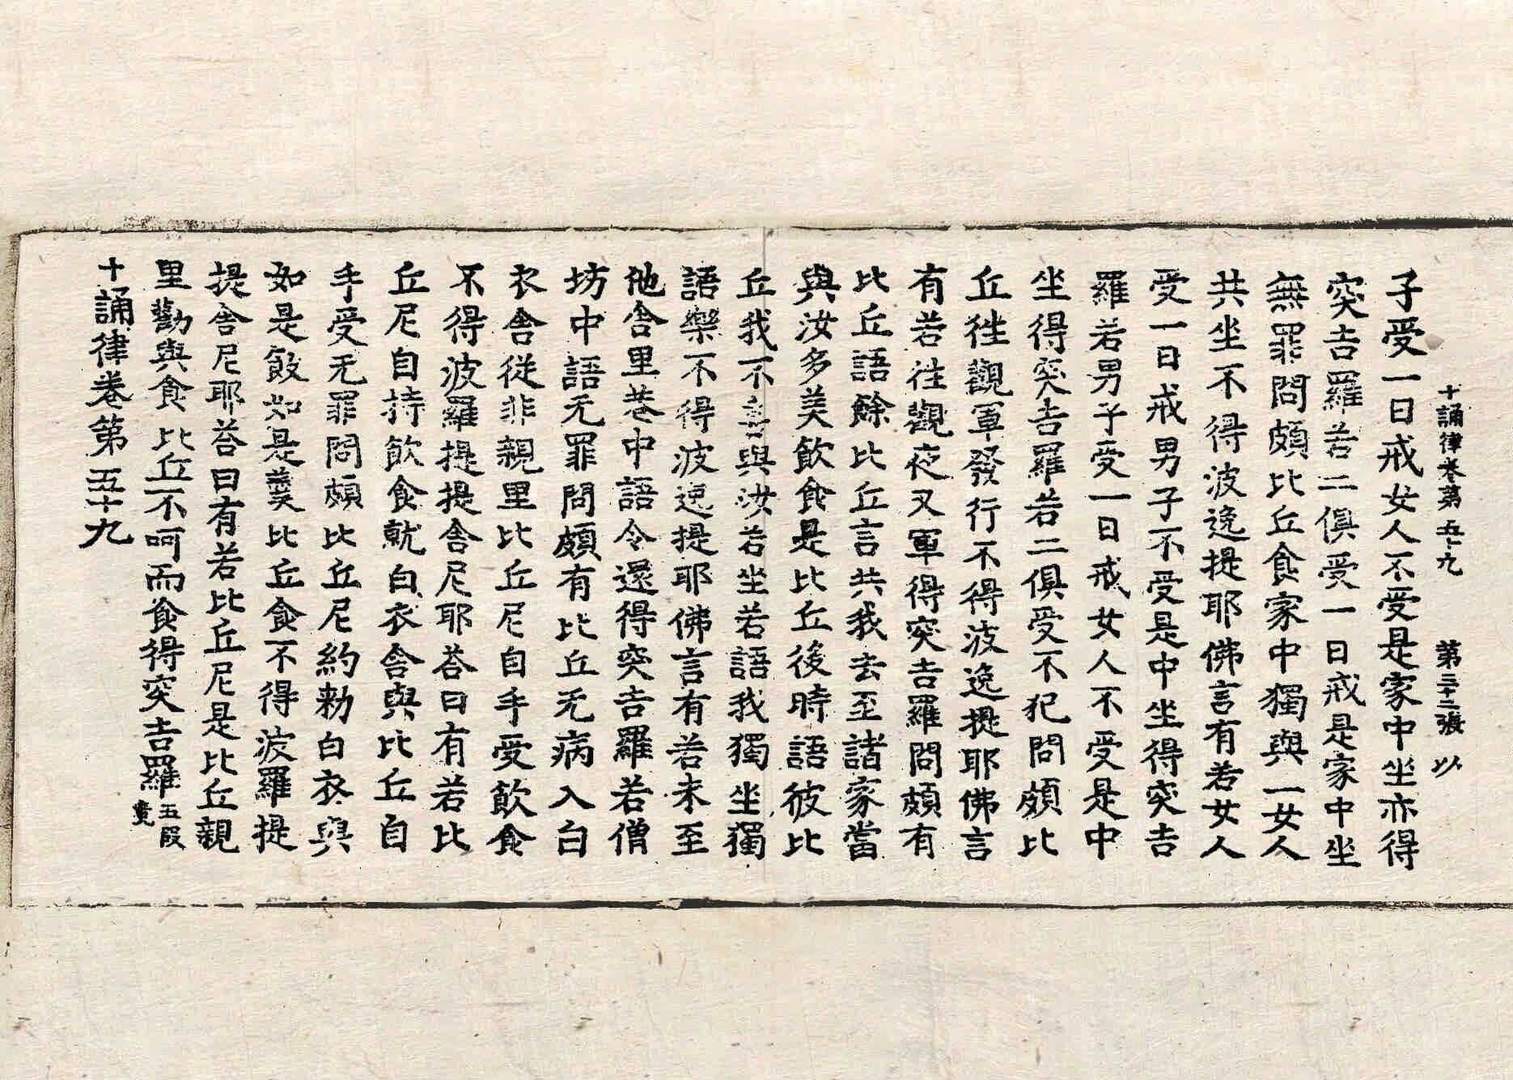 十誦律卷第五十九 第三十二張 以
子受一日戒女人不受是家中坐亦得
突吉羅若二俱受一日戒是家中坐
無罪問頗比丘食家中獨與一女人
共坐不得波逸提耶佛言有若女人
受一日戒男子不受是中坐得突吉
羅若男子受一日戒女人不受是中
坐得突吉羅若二俱受不犯問頗比
丘徃觀軍發行不得波逸提耶佛言
有若往觀夜叉軍得突吉羅問頗有
比丘語餘比丘言共我去至諸家當
與汝多美飲食是比丘後時語彼比
丘我不喜與汝若坐若語我獨坐獨
語樂不得波逸提耶佛言有若未至
他舍里巷中語令還得突吉羅若僧
坊中語无罪問頗有比丘无病入白
衣舍從非親里比丘尼自手受飲食
不得波羅提提舍尼耶荅曰有若比
丘尼自持飲食就白衣舍與比丘自
手受无罪問頗比丘尼約勅白衣與
如是飯如是羹比丘食不得波羅提
提舍尼耶荅曰有若比丘尼是比丘親
里勸與食比丘不呵而食得突吉羅 五段竟
十誦律卷第五十九